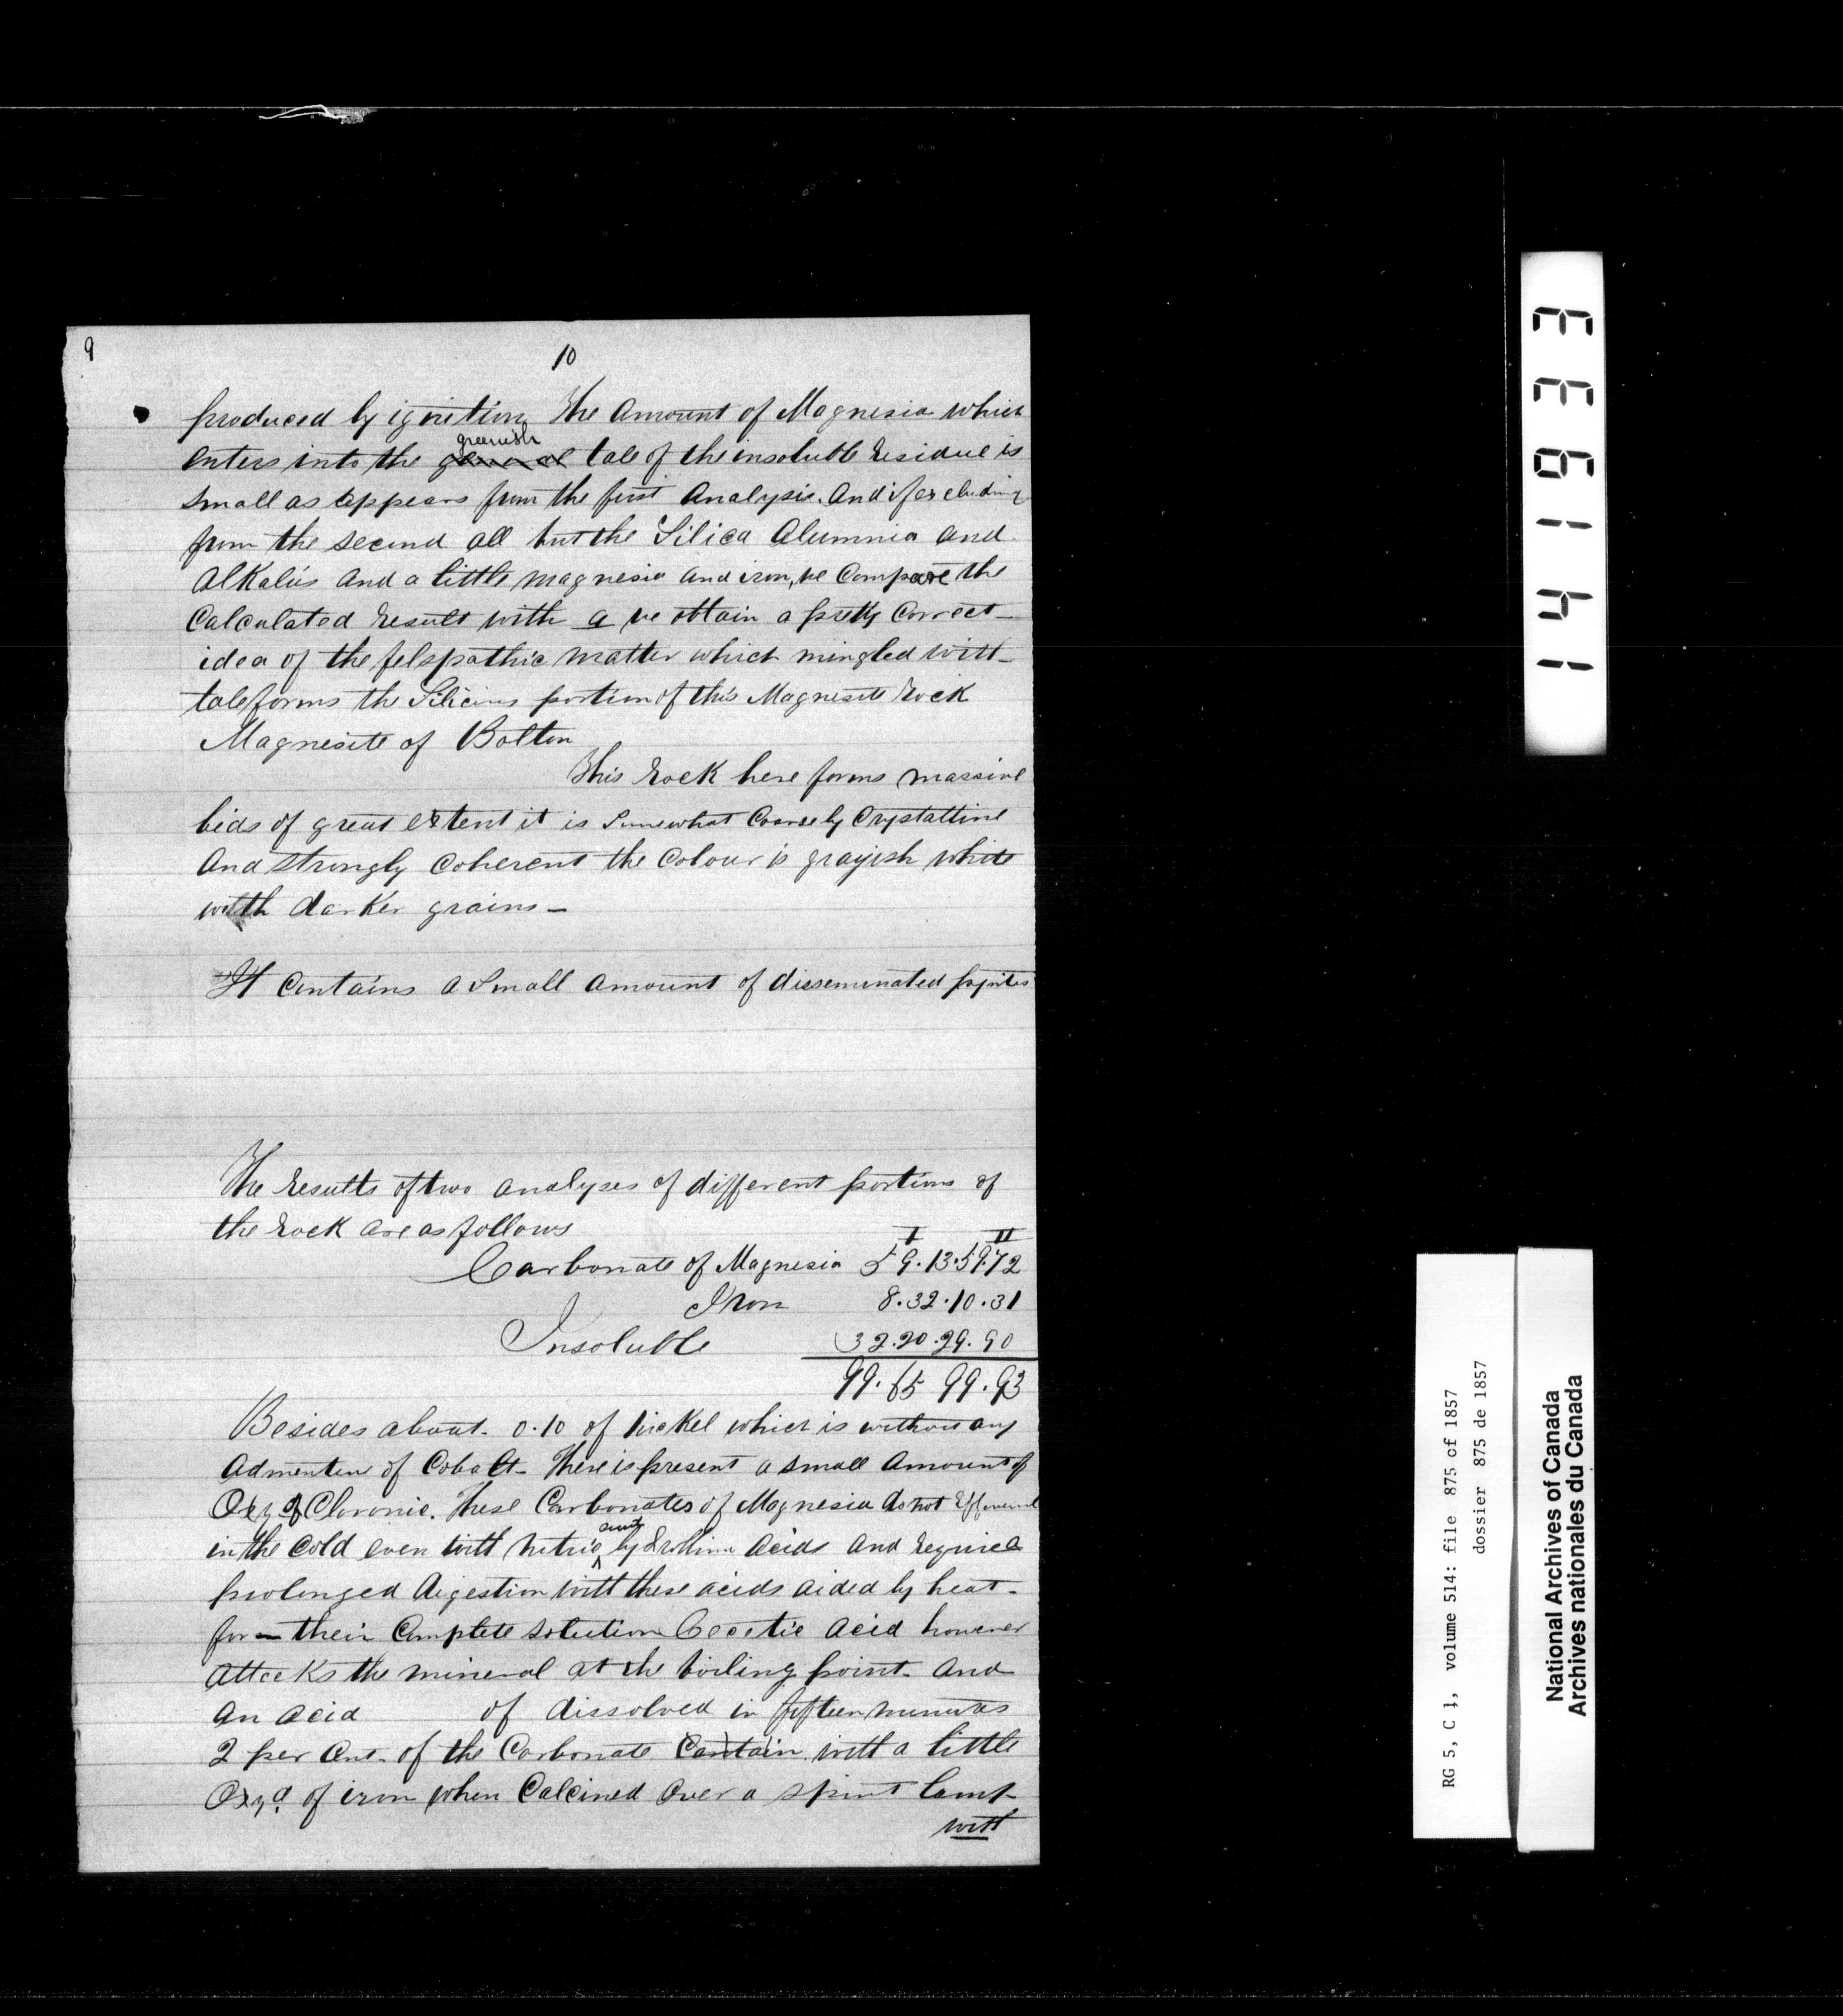 9
10
produced by ignition The Amount of Magnesia which
enters into the general greenish talc of the insoluble residue is
small as appears from the first Analysis. And if excluding
from the second all but the Silica Alumnia and
Alkalies And a little magnesia and iron, we Compare the
Calculated result with a we obtain a pretty Correct
idea of the felspathic matter which mingled with
talc forms the Silicious portion of this Magnesite rock
Magnesite of Bolton
This rock here forms massive
beds of great extent it is Somewhat Coarsely Crystalline
And strongly coherent the Colour is grayish white
with darker grains -
It Contains a small amount of disseminated pyrites
The results of two analyses of different portions of
the rock are as follows
I II
Carbonate of Magnesia 59.13.59.72
Iron 8.32.10.31
Insoluble 32.20.29.90
99.65 99.93
Besides about 0.10 of nickel which is without any
of Cobalt - There is present a small Amount of
Oxy of Chromic. These Carbonates of Magnesia do not
in the Cold even with nitric and Acids And require
prolonged digestion with these acids aided by heat -
for - their Complete solution acid however
Attacks the mineral at the boiling point - And
An Acid of dissolved in fifteen minutes
2 per Cent - of the Carbonate Contain with a little
Oxyd of iron when Calcined Over a spirit lamp
with
141933
RG 5, C 1, volume 514: file 875 of 1857
dossier 875 de 1857
National Archives of Canada
Archives nationales du Canada